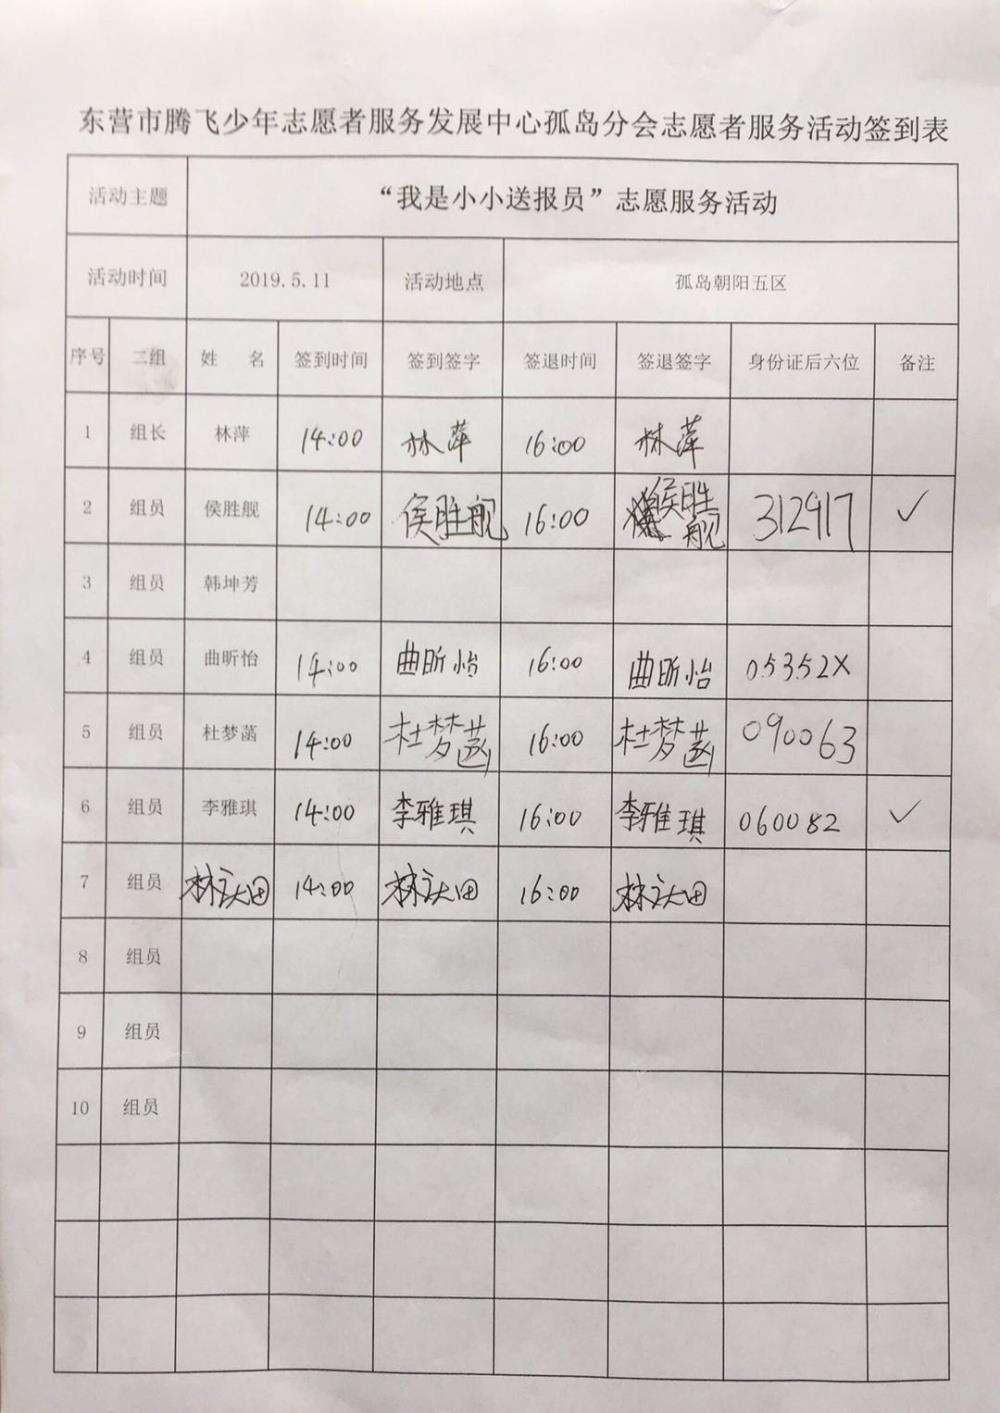 东营市腾飞少年志愿者服务发展中心孤岛分会志愿者服务活动签到表
活动主题 “我是小小送报员”志愿服务活动
活动时间 2019.5.11 活动地点 孤岛朝阳五区
序号 二组 姓 名 签到时间 签到签字 签退时间 签退签字 身份证后六位 备注
1 组长 林萍 14:00 林萍 16:00 林萍
2 组员 侯胜舰 14:00 侯胜舰 16:00 侯胜舰 312917 ✓
3 组员 韩坤芳
4 组员 曲昕怡 14:00 曲昕怡 16:00 曲昕怡 05352X
5 组员 杜梦菡 14:00 杜梦菡 16:00 杜梦菡 090063
6 组员 李雅琪 14:00 李雅琪 16:00 李雅琪 060082 ✓
7 组员 14:00 16:00
8 组员
9 组员
10 组员